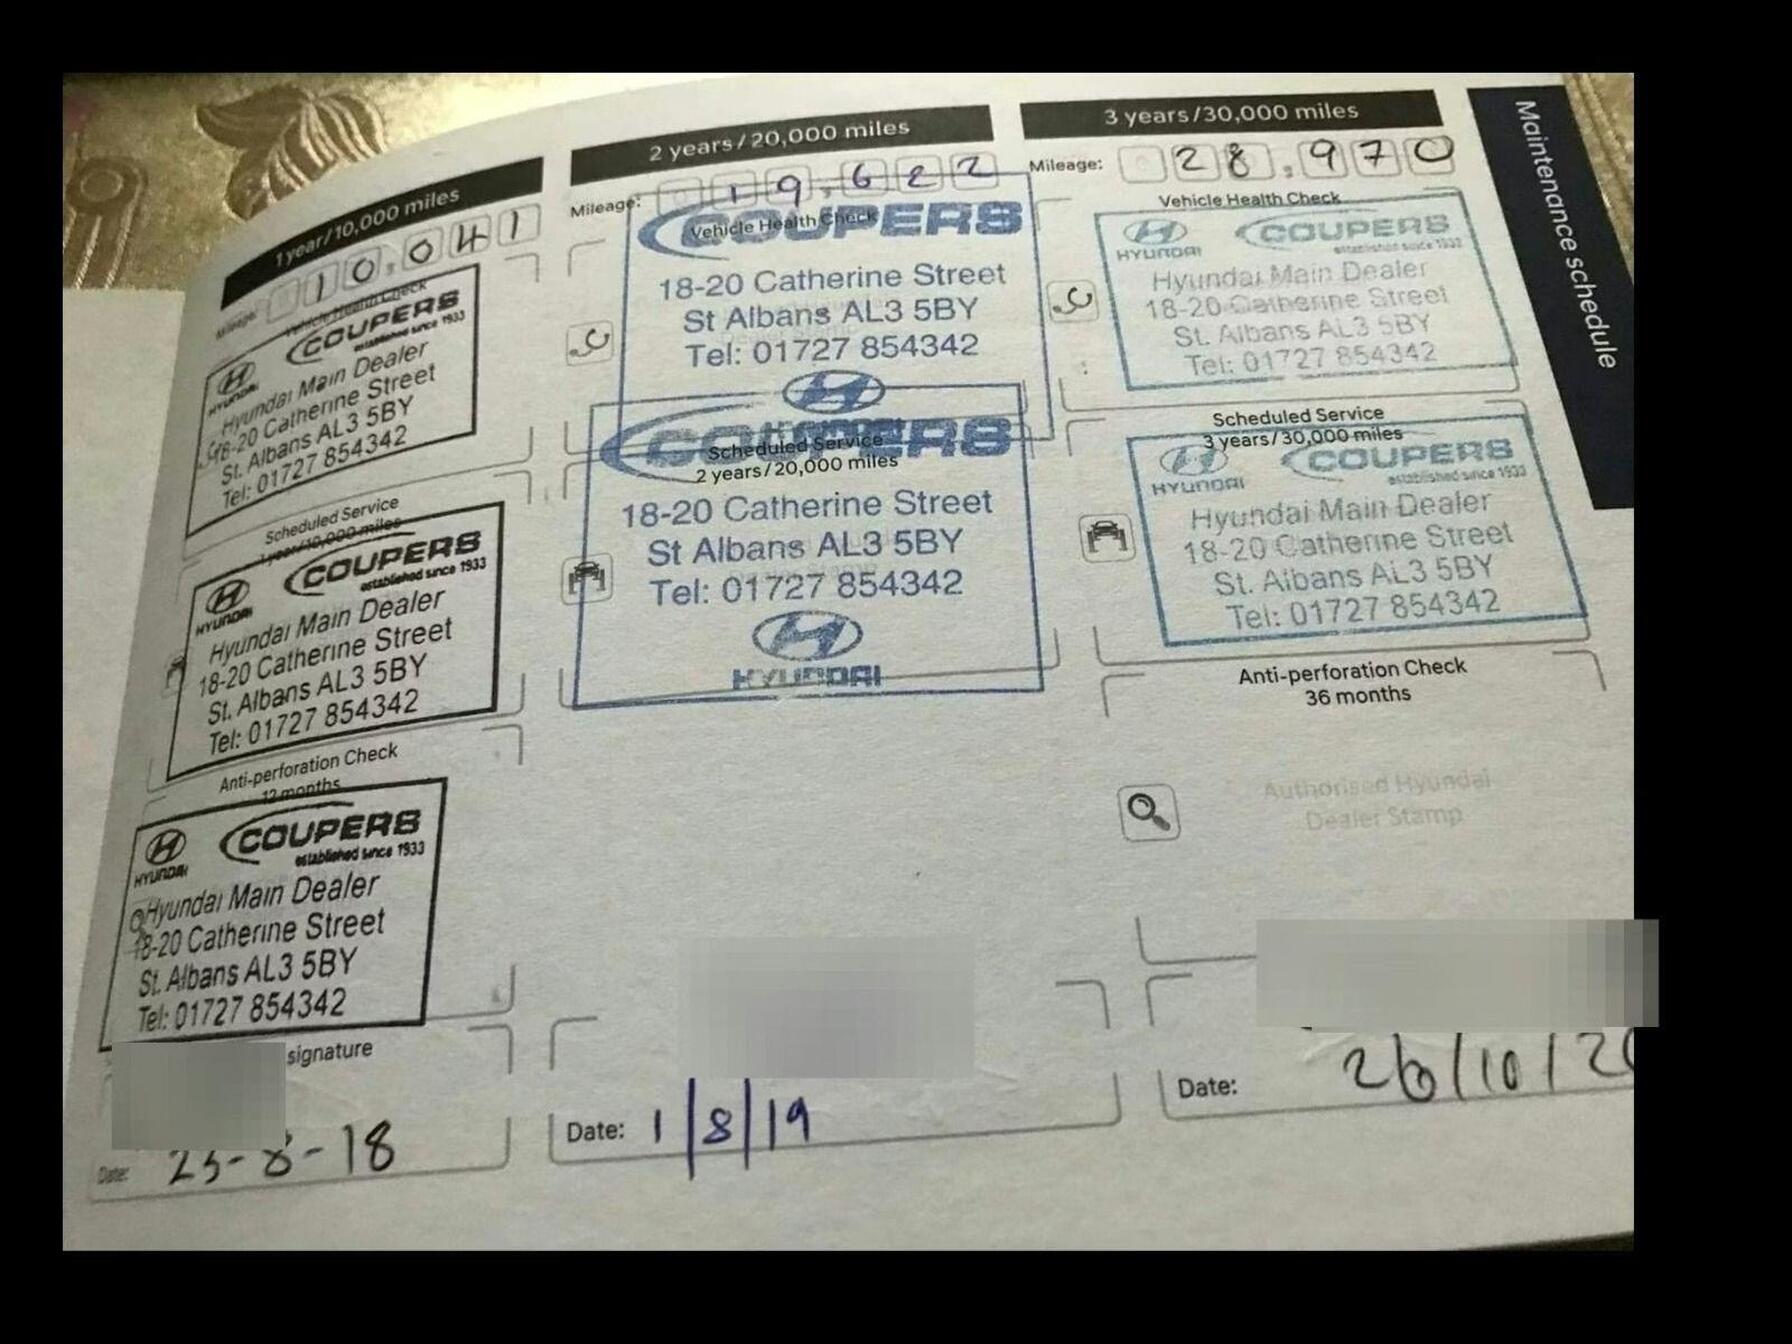 1 year/10,000 miles
Mileage: 010,041
Vehicle Health Check
HYUNDAI COUPERS
established since 1933
Hyundai Main Dealer
18-20 Catherine Street
St. Albans AL3 5BY
Tel: 01727 854342
Scheduled Service
1 year/10,000 miles
HYUNDAI COUPERS
established since 1933
Hyundai Main Dealer
18-20 Catherine Street
St. Albans AL3 5BY
Tel: 01727 854342
Anti-perforation Check
12 months
HYUNDAI COUPERS
established since 1933
Hyundai Main Dealer
18-20 Catherine Street
St. Albans AL3 5BY
Tel: 01727 854342
signature
Date: 23-8-18
2 years/20,000 miles
Mileage: 019,622
Vehicle Health Check
COUPERS
18-20 Catherine Street
St Albans AL3 5BY
Tel: 01727 854342
COUPERS
Scheduled Service
2 years/20,000 miles
18-20 Catherine Street
St Albans AL3 5BY
Tel: 01727 854342
HYUNDAI
Date: 1/8/19
3 years/30,000 miles
Mileage: 028,970
Vehicle Health Check
HYUNDAI COUPERS
established since 1933
Hyundai Main Dealer
18-20 Catherine Street
St. Albans AL3 5BY
Tel: 01727 854342
Scheduled Service
3 years/30,000 miles
HYUNDAI COUPERS
established since 1933
Hyundai Main Dealer
18-20 Catherine Street
St. Albans AL3 5BY
Tel: 01727 854342
Anti-perforation Check
36 months
Authorised Hyundai
Dealer Stamp
Date: 26/10/20
Maintenance schedule